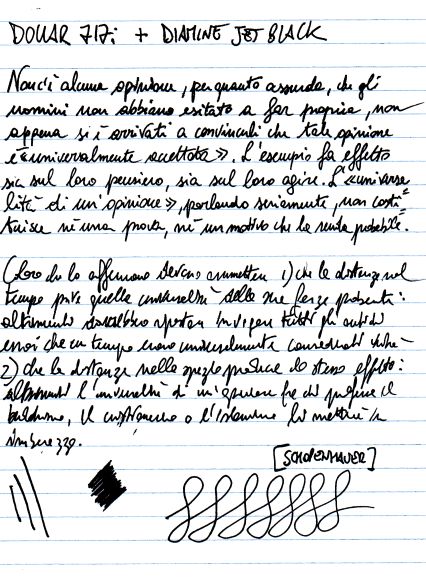 DOLLAR 717i + DIAMINE JET BLACK
Non c'è alcuna opinione, per quanto assurda, che gli
uomini non abbiano esitato a far propria, non
appena si è arrivati a convincerli che tale opinione
è «universalmente accettata». L'esempio fa effetto
sia sul loro pensiero, sia sul loro agire. L'«universa
lità di un'opinione», parlando seriamente, non costi=
tuisce né una prova, né un motivo che la renda probabile.
Coloro che lo affermano devono ammettere 1) che la distanza nel
tempo privi quelle universalità della sua forza probante:
altrimenti dovrebbero riportare in vigore tutti gli antichi
errori che un tempo erano universalmente considerati verità
2) che la distanza nello spazio produce lo stesso effetto:
altrimenti l'universalità di un'opinione fra chi professa il
buddismo, il cristianesimo o l'islamismo li metterà in
imbarazzo.
[SCHOPENHAUER]